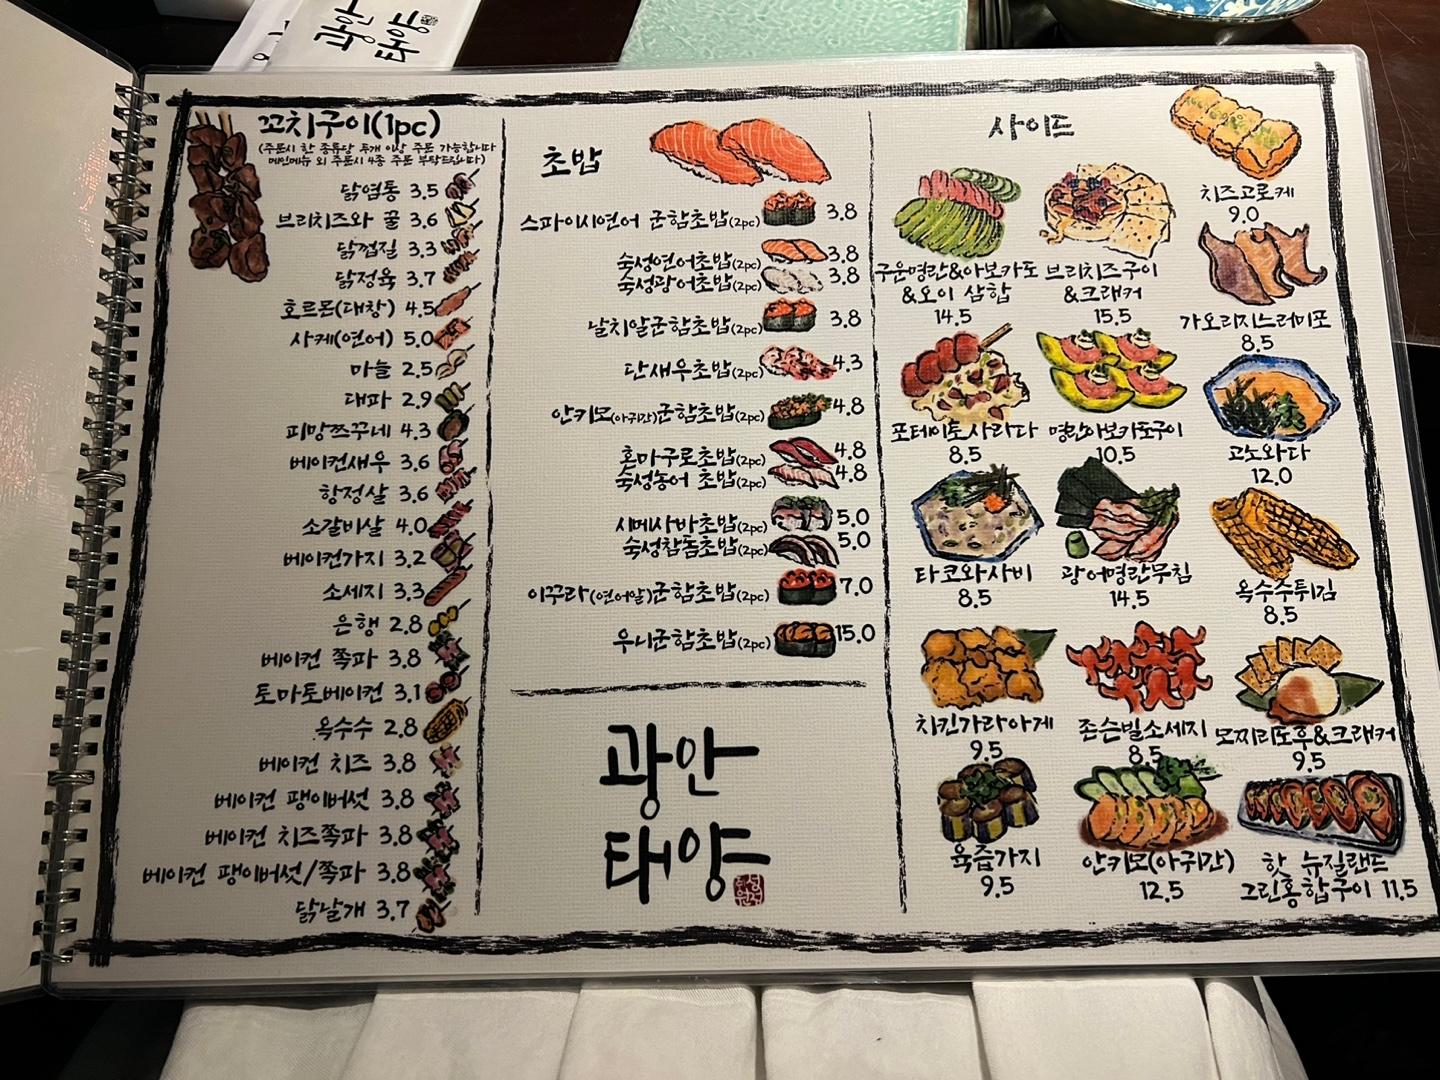 광안
태양
꼬치구이(1pc)
(주문시 한 종류당 두개 이상 주문 가능합니다
메인메뉴 외 주문시 4종 주문 부탁드립니다)
닭염통 3.5
브리치즈와 꿀 3.6
닭껍질 3.3
닭정육 3.7
호르몬(대창) 4.5
사케(연어) 5.0
마늘 2.5
대파 2.9
피망쯔꾸네 4.3
베이컨새우 3.6
항정살 3.6
소갈비살 4.0
베이컨가지 3.2
소세지 3.3
은행 2.8
베이컨 쪽파 3.8
토마토베이컨 3.1
옥수수 2.8
베이컨 치즈 3.8
베이컨 팽이버섯 3.8
베이컨 치즈쪽파 3.8
베이컨 팽이버섯/쪽파 3.8
닭날개 3.7
초밥
스파이시연어 군함초밥(2pc) 3.8
숙성연어초밥(2pc) 3.8
숙성광어초밥(2pc) 3.8
날치알군함초밥(2pc) 3.8
단새우초밥(2pc) 4.3
안키모(아귀간)군함초밥(2pc) 4.8
혼마구로초밥(2pc) 4.8
숙성농어 초밥(2pc) 4.8
시메사바초밥(2pc) 5.0
숙성참돔초밥(2pc) 5.0
이꾸라(연어알)군함초밥(2pc) 7.0
우니군함초밥(2pc) 15.0
광안
태양
사이드
치즈고로케
9.0
구운명란&아보카도
&오이 삼합
14.5
브리치즈구이
&크래커
15.5
가오리지느러미포
8.5
포테이토사라다
8.5
명란아보카도구이
10.5
고노와다
12.0
타코와사비
8.5
광어명란무침
14.5
옥수수튀김
8.5
치킨가라아게
9.5
존슨빌소세지
8.5
모찌리도후&크래커
9.5
육즙가지
9.5
안키모(아귀간)
12.5
핫 뉴질랜드
그린홍합구이 11.5